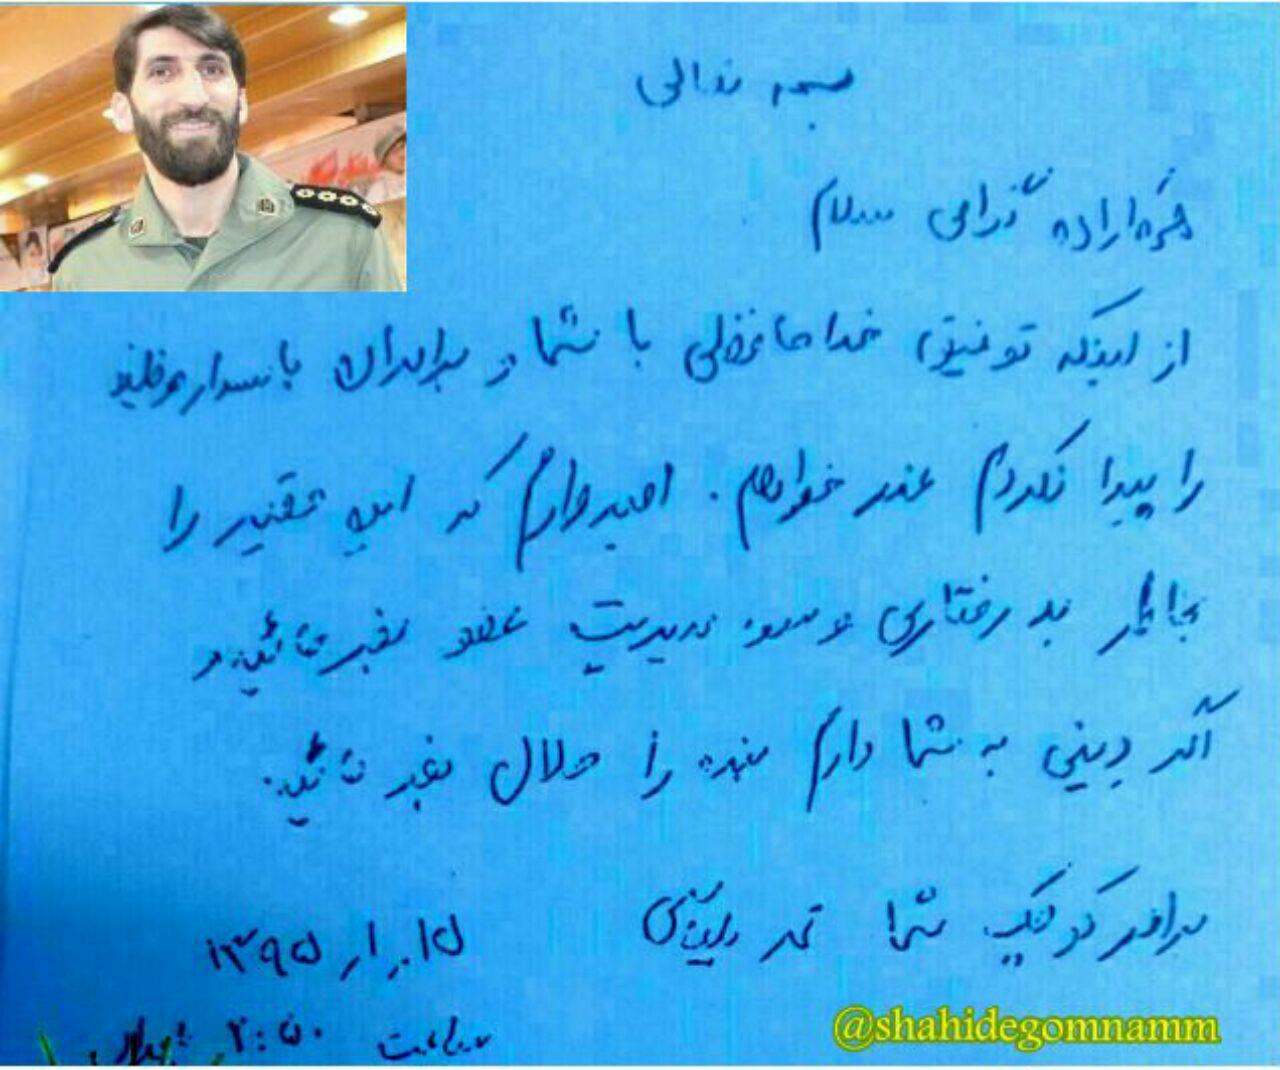 بسمه تعالی
گرامی سلام
از اینکه توفیق خداحافظی با شما و برادران پاسدار وظیفه
را پیدا نکردم عذر خواهم. امیدوارم که این تقصیر را
بخاطر بد رفتاری و سوء مدیریت نفرمائید و
اگر دینی به شما دارم بنده را حلال بفرمائید.
برادر کوچک شما
۱۳۹۵
ساعت ۲:۵۰
@shahidegomnamm